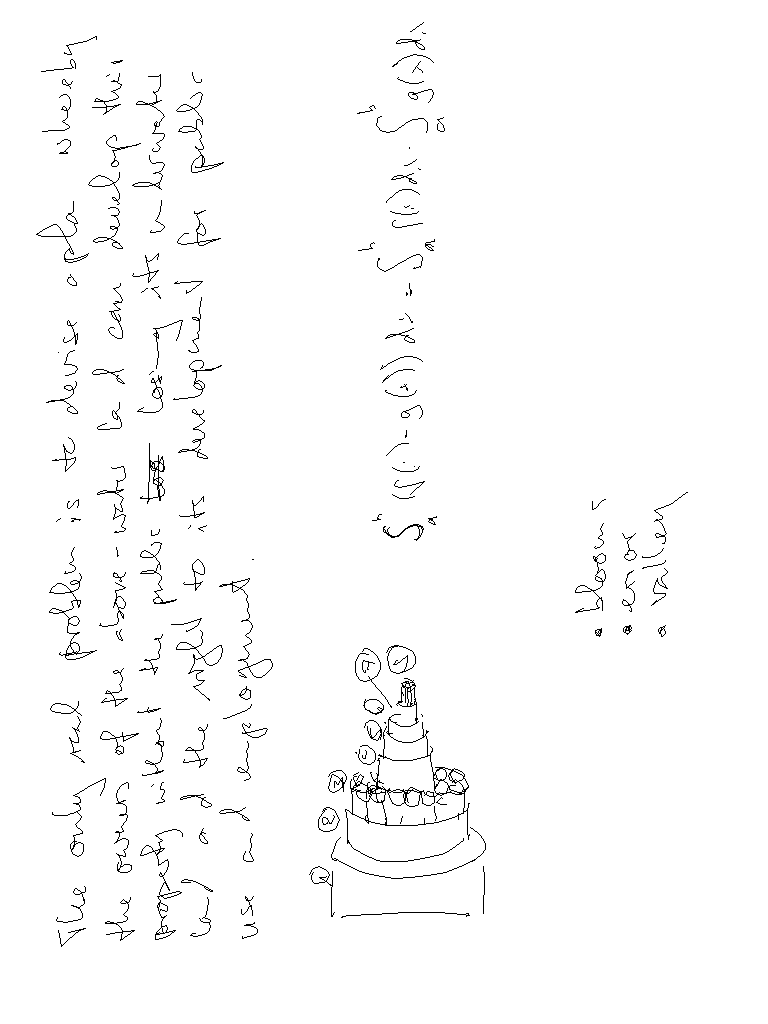 The only real problem is to devise a pla whereby
the owner of the above-water la d can develop this
property without the public losing its u derwater
la d a d the right to its development for public
use and enjoyment.
∫_a^b (f(x)-g(x))dx=∫_a^b f(x)dx-∫_a^b g(x)dx
• blooms
• error
• valley